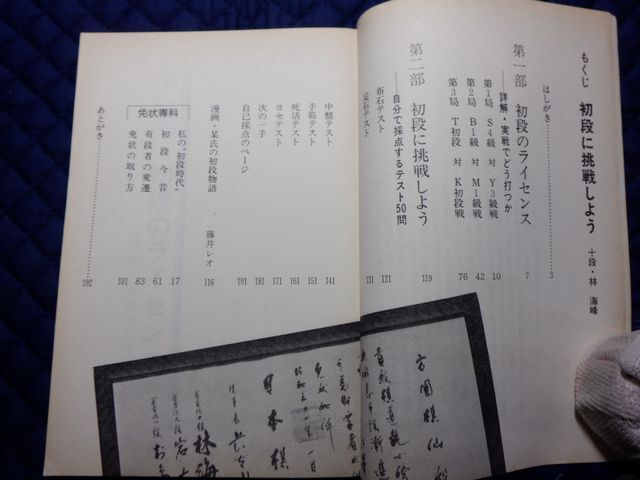 もくじ 初段に挑戦しよう 十段・林 海峰
はしがき 3
第一部 初段のライセンス 7
——詳解・実戦でどう打つか
第1局 S4級 対 Y3級戦 10
第2局 B1級 対 M1級戦 42
第3局 T初段 対 K初段戦 76
第二部 初段に挑戦しよう 119
——自分で採点するテスト50問
布石テスト 121
定石テスト 131
中盤テスト 141
手筋テスト 151
死活テスト 161
ヨセテスト 171
次の一手 181
自己採点のページ 191
漫画・某氏の初段物語 藤井レオ 116
免状専科
私の“初段時代” 17
初段今昔 61
有段者の変遷 83
免状の取り方 101
あとがき 192
日本棋